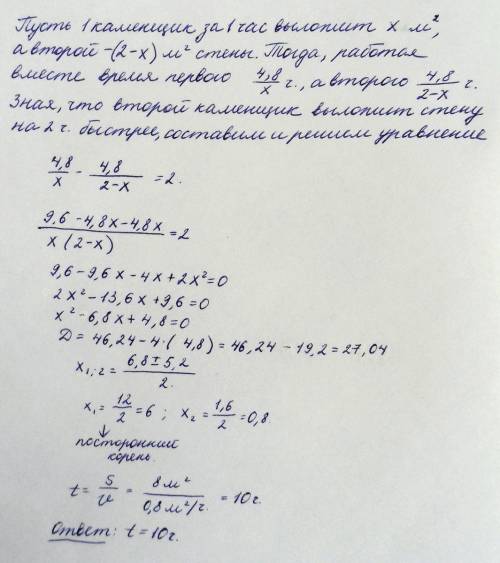 Пусть 1 каменщик за 1 час выложит x м²,
а второй - (2-x) м² стены. Тогда, работая
вместе время первого 4,8/x ч., а второго 4,8/2-x ч.
Зная, что второй каменщик выложит стену
на 2 ч. быстрее, составим и решим уравнение
4,8/x - 4,8/2-x = 2.
9,6 - 4,8x - 4,8x / x(2-x) = 2
9,6 - 9,6x - 4x + 2x² = 0
2x² - 13,6x + 9,6 = 0
x² - 6,8x + 4,8 = 0
D = 46,24 - 4·(4,8) = 46,24 - 19,2 = 27,04
x₁;₂ = 6,8 ± 5,2 / 2.
x₁ = 12/2 = 6 ; x₂ = 1,6/2 = 0,8.
↓
посторонний
корень.
t = S/v = 8 м² / 0,8 м²/ч. = 10 ч.
Ответ: t = 10 ч.